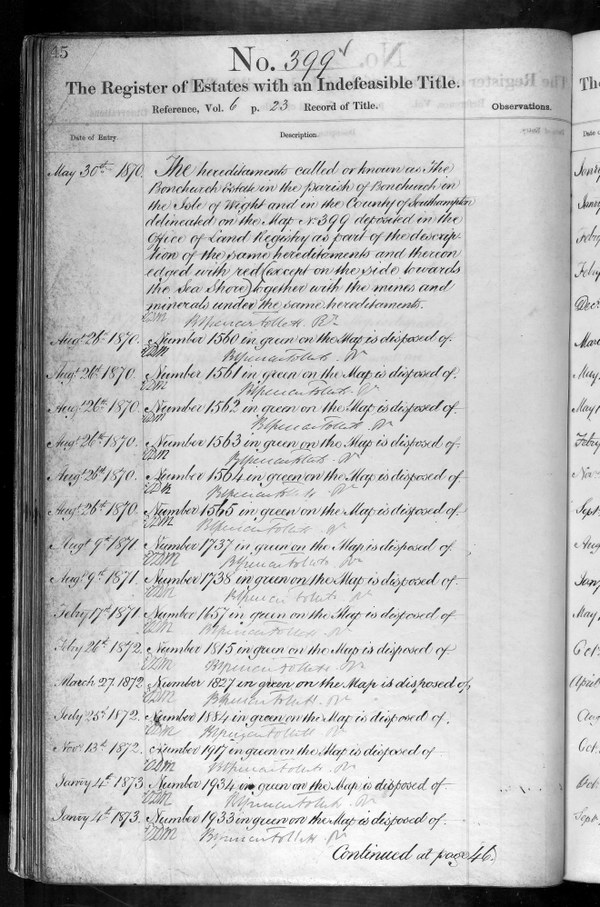 45
No. 399
The Register of Estates with an Indefeasible Title.
Reference, Vol. 6 p. 23 Record of Title.
Observations.
Date of Entry.
Description.
May 30th 1870. The hereditaments called or known as The
Bonchurch Estate in the parish of Bonchurch in
the Isle of Wight and in the County of Southampton
delineated on the Map No 399 deposited in the
Office of Land Registry as part of the descrip-
tion of the same hereditaments and thereon
edged with red (except on the side towards
the Sea Shore) together with the mines and
minerals under the same hereditaments.
BSpencer Follett Rr.
Augt 26th 1870. Number 1560 in green on the Map is disposed of.
BSpencer Follett Rr
Augt 26th 1870. Number 1561 in green on the Map is disposed of.
BSpencer Follett Rr
Augt 26th 1870. Number 1562 in green on the Map is disposed of
BSpencer Follett Rr
Augt 26th 1870. Number 1563 in green on the Map is disposed of
BSpencer Follett Rr
Augt 26th 1870. Number 1564 in green on the Map is disposed of
BSpencer Follett Rr
Augt 26th 1870. Number 1565 in green on the Map is disposed of
BSpencer Follett Rr
Augt 9th 1871. Number 1737 in green on the Map is disposed of
BSpencer Follett Rr
Augt 9th 1871. Number 1738 in green on the Map is disposed of
BSpencer Follett Rr
Febry 17th 1871 Number 1657 in green on the Map is disposed of
BSpencer Follett Rr
Febry 26th 1872. Number 1815 in green on the Map is disposed of
BSpencer Follett Rr
March 27 1872 Number 1827 in green on the Map is disposed of,
BSpencer Follett Rr
July 25th 1872. Number 1884 in green on the Map is disposed of.
BSpencer Follett Rr
Novr 13th 1872. Number 1917 in green on the Map is disposed of
BSpencer Follett Rr
Janry 4th 1873 Number 1934 in green on the Map is disposed of
BSpencer Follett Rr
Janry 4th 1873. Number 1933 in green on the Map is disposed of
BSpencer Follett Rr
Continued at page 46.